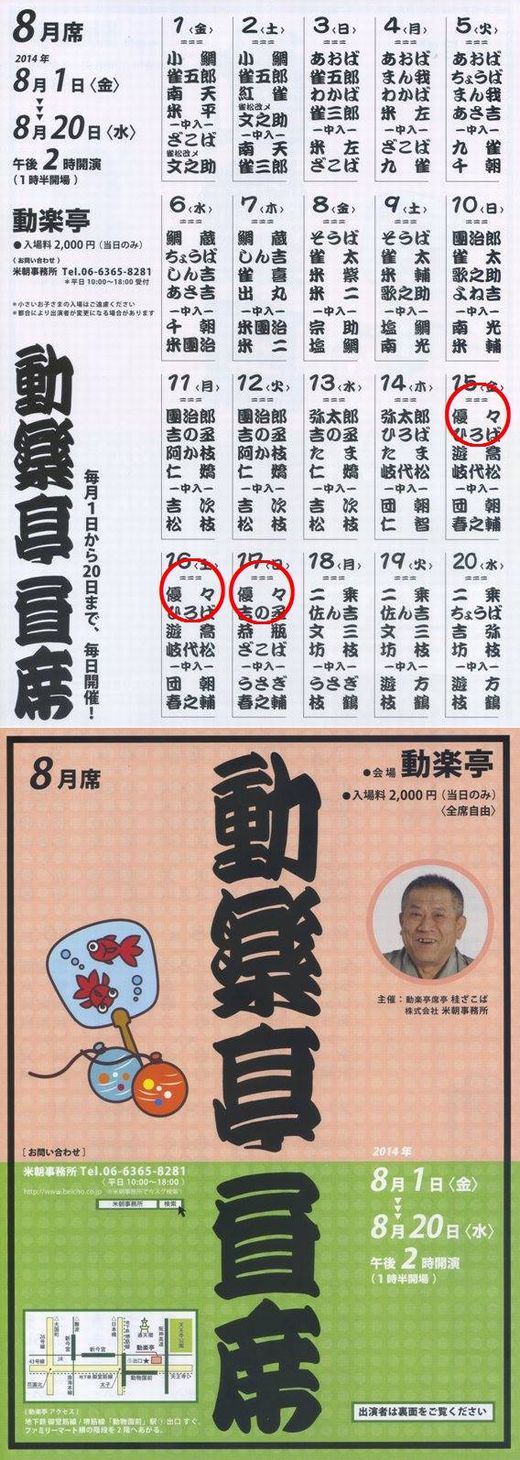 8月席
2014年
8月1日〈金〉
8月20日〈水〉
午後2時開演
(1時半開場)
動楽亭
●入場料2,000円(当日のみ)
(お問い合わせ)
米朝事務所 Tel.06-6365-8281
*平日10:00〜18:00受付
*小さいお子さまの入場はご遠慮ください
*都合により出演者が変更になる場合があります
動楽亭昼席
毎月1日から20日まで、毎日開催!
1〈金〉
小鯛
雀五郎
南天
米平
ー中入ー
ざこば
雀松改メ
文之助
2〈土〉
小鯛
雀五郎
紅雀
雀松改メ
文之助
ー中入ー
南天
雀三郎
3〈日〉
あおば
わかば
雀三郎
ー中入ー
米左
ざこば
4〈月〉
あおば
まん我
わかば
米左
ー中入ー
ざこば
九雀
5〈火〉
あおば
ちょうば
まん我
あさ吉
ー中入ー
九雀
千朝
6〈水〉
鯛蔵
ちょうば
しん吉
あさ吉
ー中入ー
千朝
米團治
7〈木〉
鯛蔵
しん吉
雀喜
出丸
ー中入ー
米團治
米二
8〈金〉
そうば
雀太
米紫
米二
ー中入ー
宗助
塩鯛
9〈土〉
そうば
雀太
米輔
歌之助
ー中入ー
塩鯛
南光
10〈日〉
團治郎
雀太
歌之助
よね吉
ー中入ー
南光
米輔
11〈月〉
團治郎
吉の丞
阿か枝
仁嬌
ー中入ー
吉次
松枝
12〈火〉
團治郎
吉の丞
阿か枝
仁嬌
ー中入ー
吉次
松枝
13〈水〉
弥太郎
吉の丞
たま
仁嬌
ー中入ー
吉次
松枝
14〈木〉
弥太郎
ひろば
たま
岐代松
ー中入ー
団朝
仁智
15〈金〉
優々
ひろば
遊喬
岐代松
ー中入ー
団朝
春之輔
16〈土〉
優々
ひろば
遊喬
岐代松
ー中入ー
団朝
春之輔
17〈日〉
優々
吉の丞
恭瓶
ざこば
ー中入ー
うさぎ
春之輔
18〈月〉
二乗
佐ん吉
文三
坊枝
ー中入ー
うさぎ
枝鶴
19〈火〉
二乗
佐ん吉
文三
坊枝
ー中入ー
遊方
枝鶴
20〈水〉
二乗
ちょうば
吉弥
坊枝
ー中入ー
遊方
枝鶴
8月席
●会場 動楽亭
●入場料2,000円(当日のみ)
〈全席自由〉
動楽亭昼席
主催:動楽亭席亭 桂ざこば
株式会社 米朝事務所
[お問い合わせ]
米朝事務所 Tel.06-6365-8281
〈平日10:00〜18:00〉
http://www.beicho.co.jp ※米朝事務所で今スグ検索!
米朝事務所 検索
2014年
8月1日〈金〉
8月20日〈水〉
午後2時開演
(1時半開場)
新今宮
通天閣
動楽亭
①出口★
動物園前
43号線
(動楽亭アクセス)
地下鉄 御堂筋線/堺筋線「動物園前」駅①出口 すぐ、
ファミリーマート横の階段を2階へあがる。
出演者は裏面をご覧ください